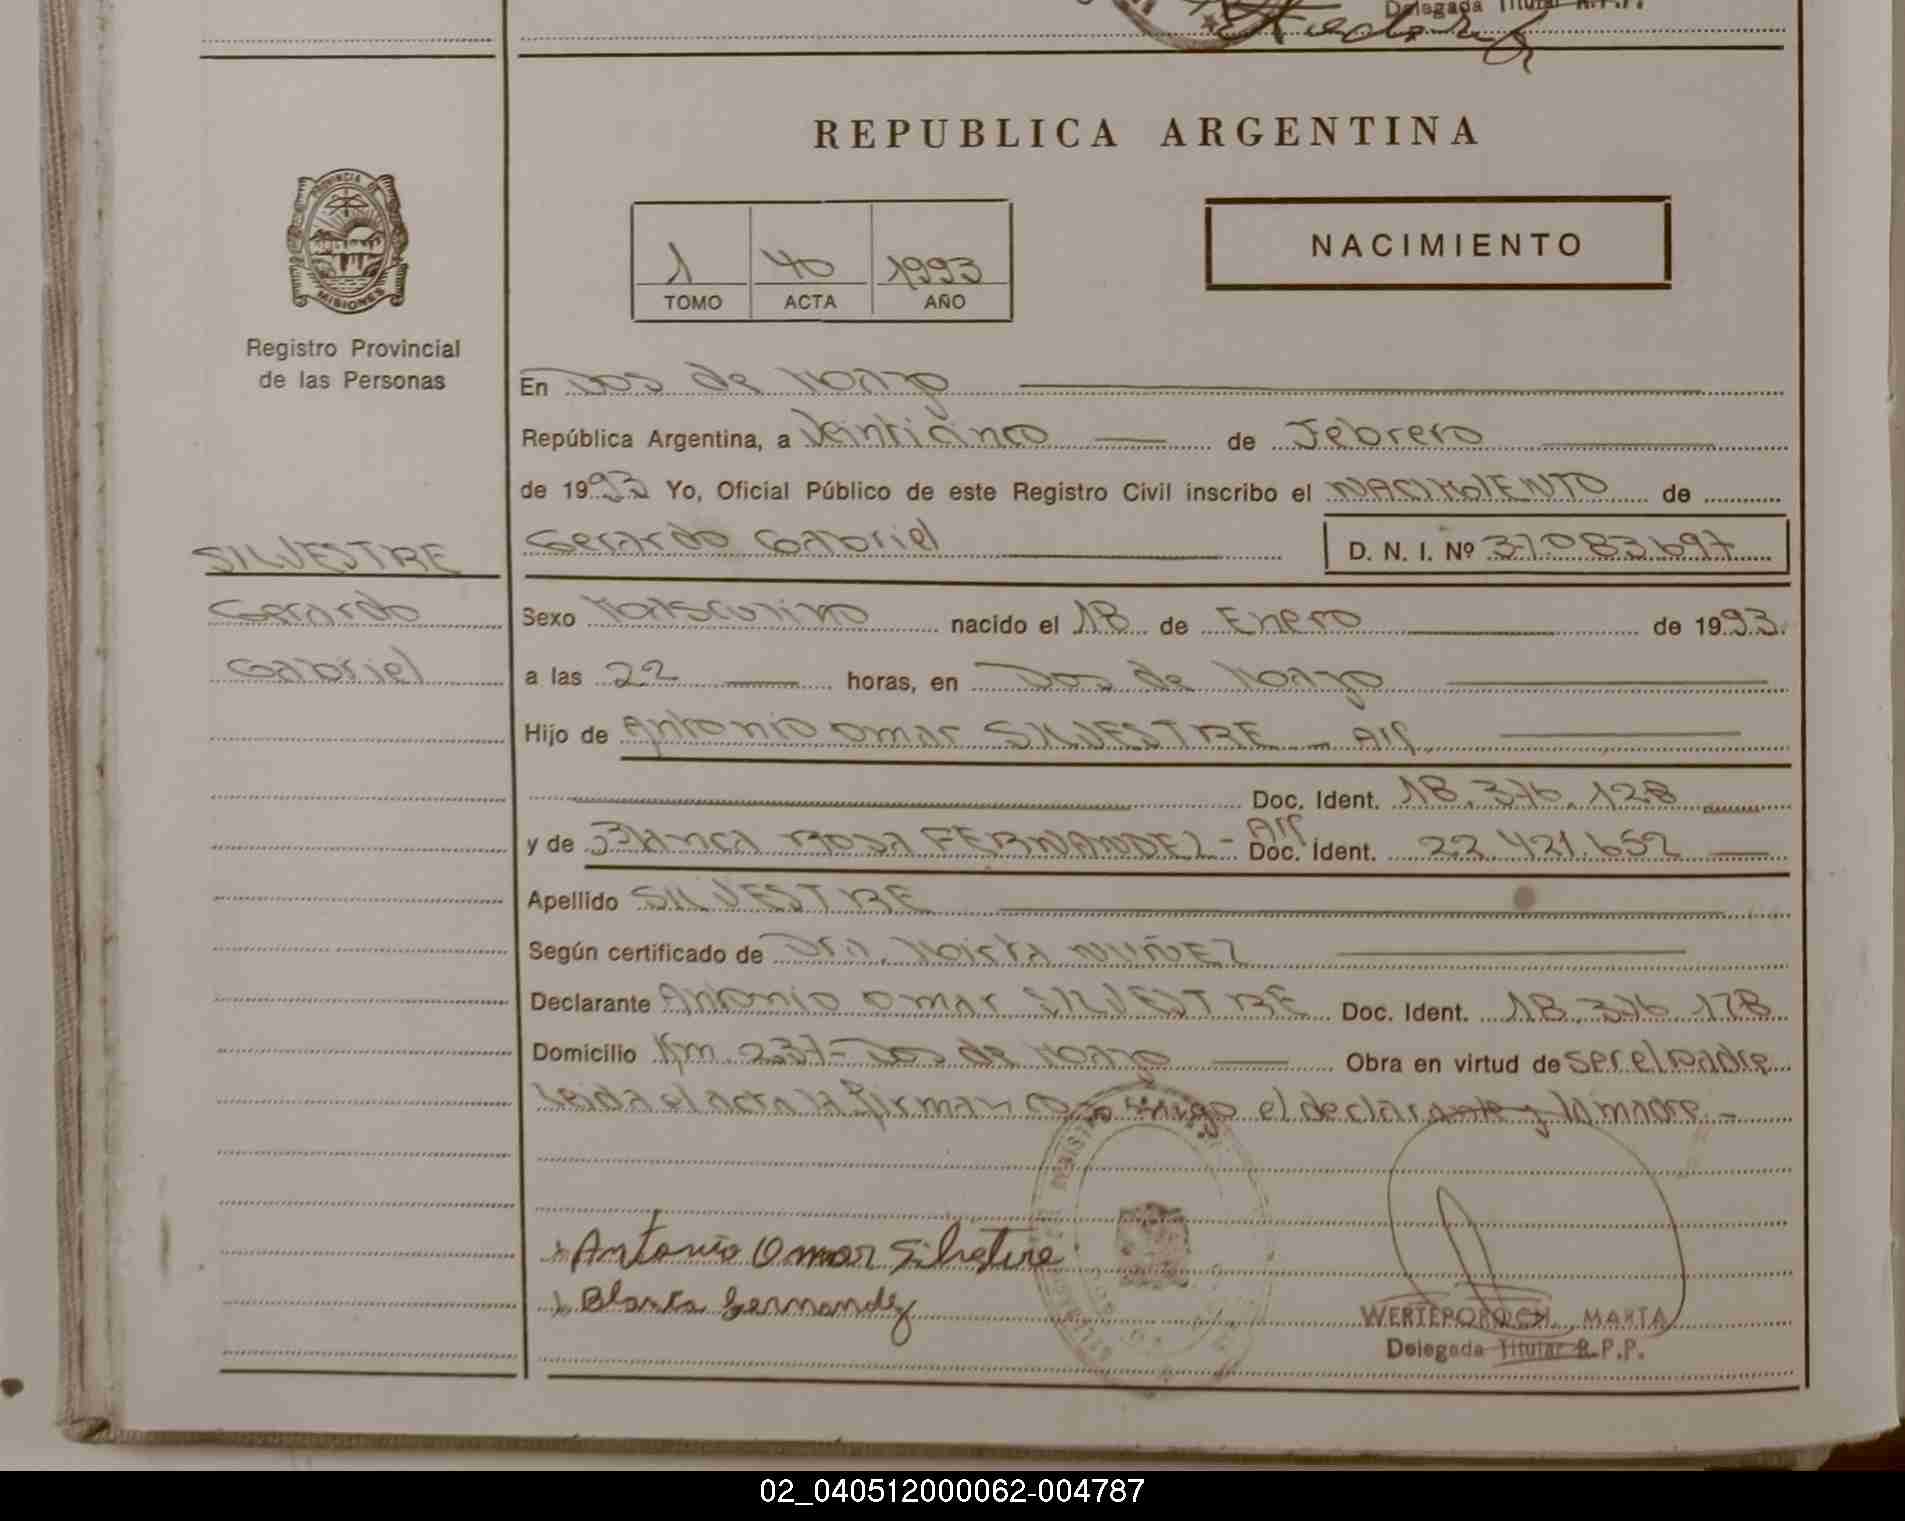 Delegada Titular R.P.P.
REPUBLICA ARGENTINA
PROVINCIA DE
MISIONES
Registro Provincial
de las Personas
1 40 1993
TOMO ACTA AÑO
NACIMIENTO
En Dos de Marzo
República Argentina, a Veinticinco de Febrero
de 1993 Yo, Oficial Público de este Registro Civil inscribo el NACIMIENTO de
Gerardo Gabriel D. N. I. Nº 37.083.697
SILVESTRE
Gerardo
Gabriel
Sexo Masculino nacido el 18 de Enero de 1993.
a las 22 horas, en Dos de Marzo
Hijo de Antonio Omar SILVESTRE - Arg.
Doc. Ident. 18.376.128
y de Blanca Rosa FERNANDEZ - Arg. Doc. Ident. 22.421.652
Apellido SILVESTRE
Según certificado de Dra. Mirta NUÑEZ
Declarante Antonio Omar SILVESTRE Doc. Ident. 18.376.128
Domicilio Km. 237 - Dos de Marzo Obra en virtud de ser el padre
Leida el acta la firman conmigo el declarante y la madre. -
Antonio Omar Silvestre
Blanca Fernandez
WERTEPOROCH, MARTA
Delegada Titular R.P.P.
02_040512000062-004787